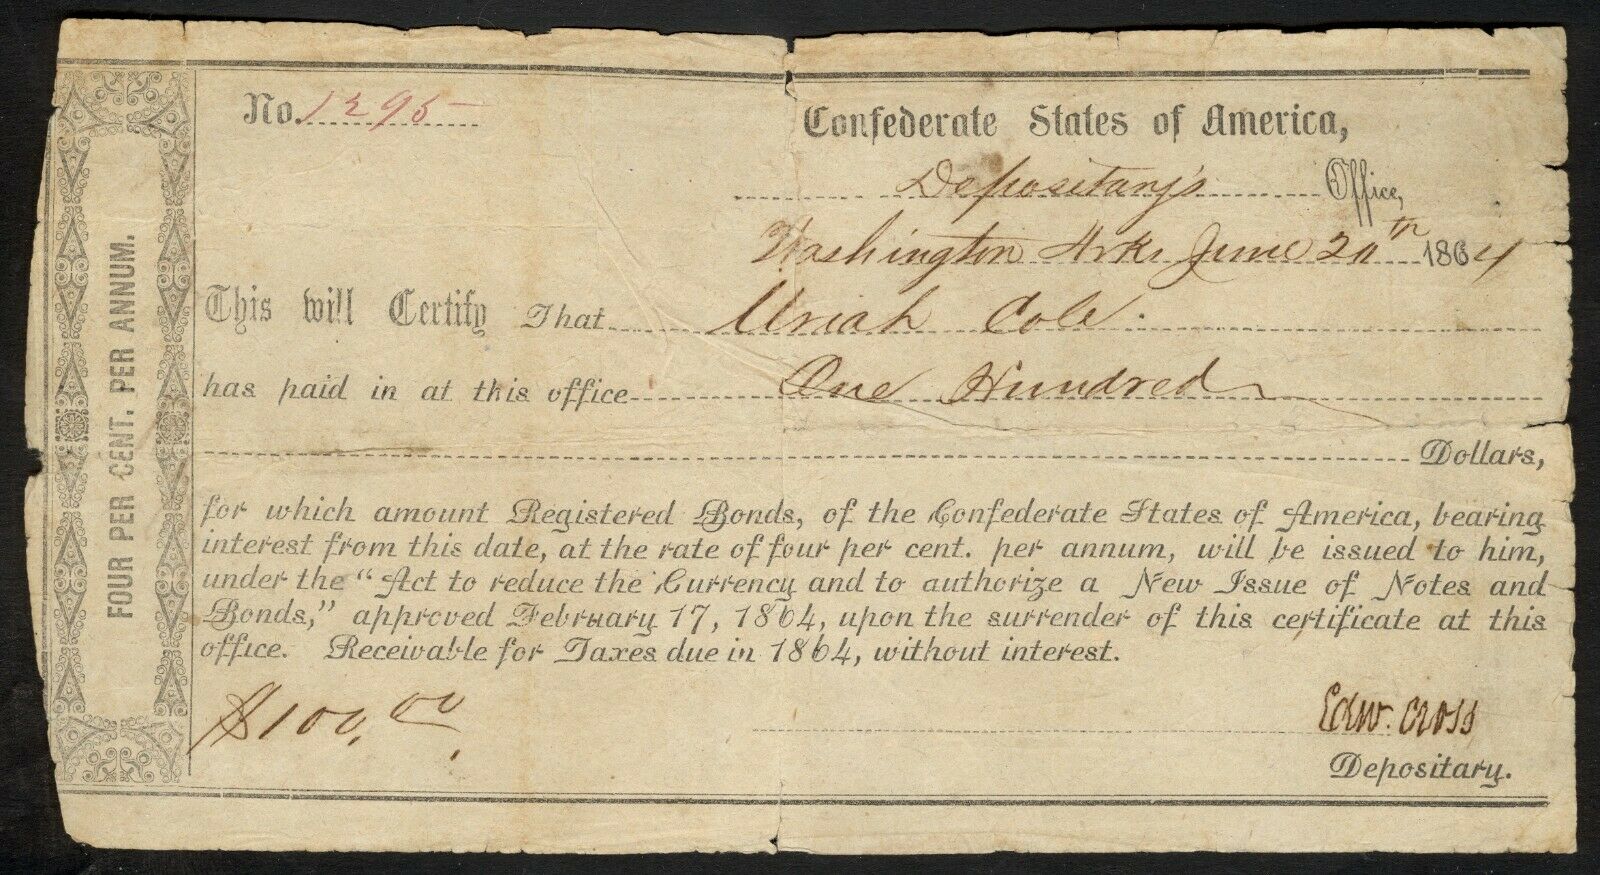 FOUR PER CENT. PER ANNUM.
No. 1295
Confederate States of America,
Depositary's Office,
Washington Arks June 20th 1864
This will Certify That Uriah Cole.
has paid in at this office One Hundred
Dollars,
for which amount Registered Bonds, of the Confederate States of America, bearing
interest from this date, at the rate of four per cent. per annum, will be issued to him,
under the "Act to reduce the Currency and to authorize a New Issue of Notes and
Bonds," approved February 17, 1864, upon the surrender of this certificate at this
office. Receivable for Taxes due in 1864, without interest.
$100.00
Edw. Cross
Depositary.